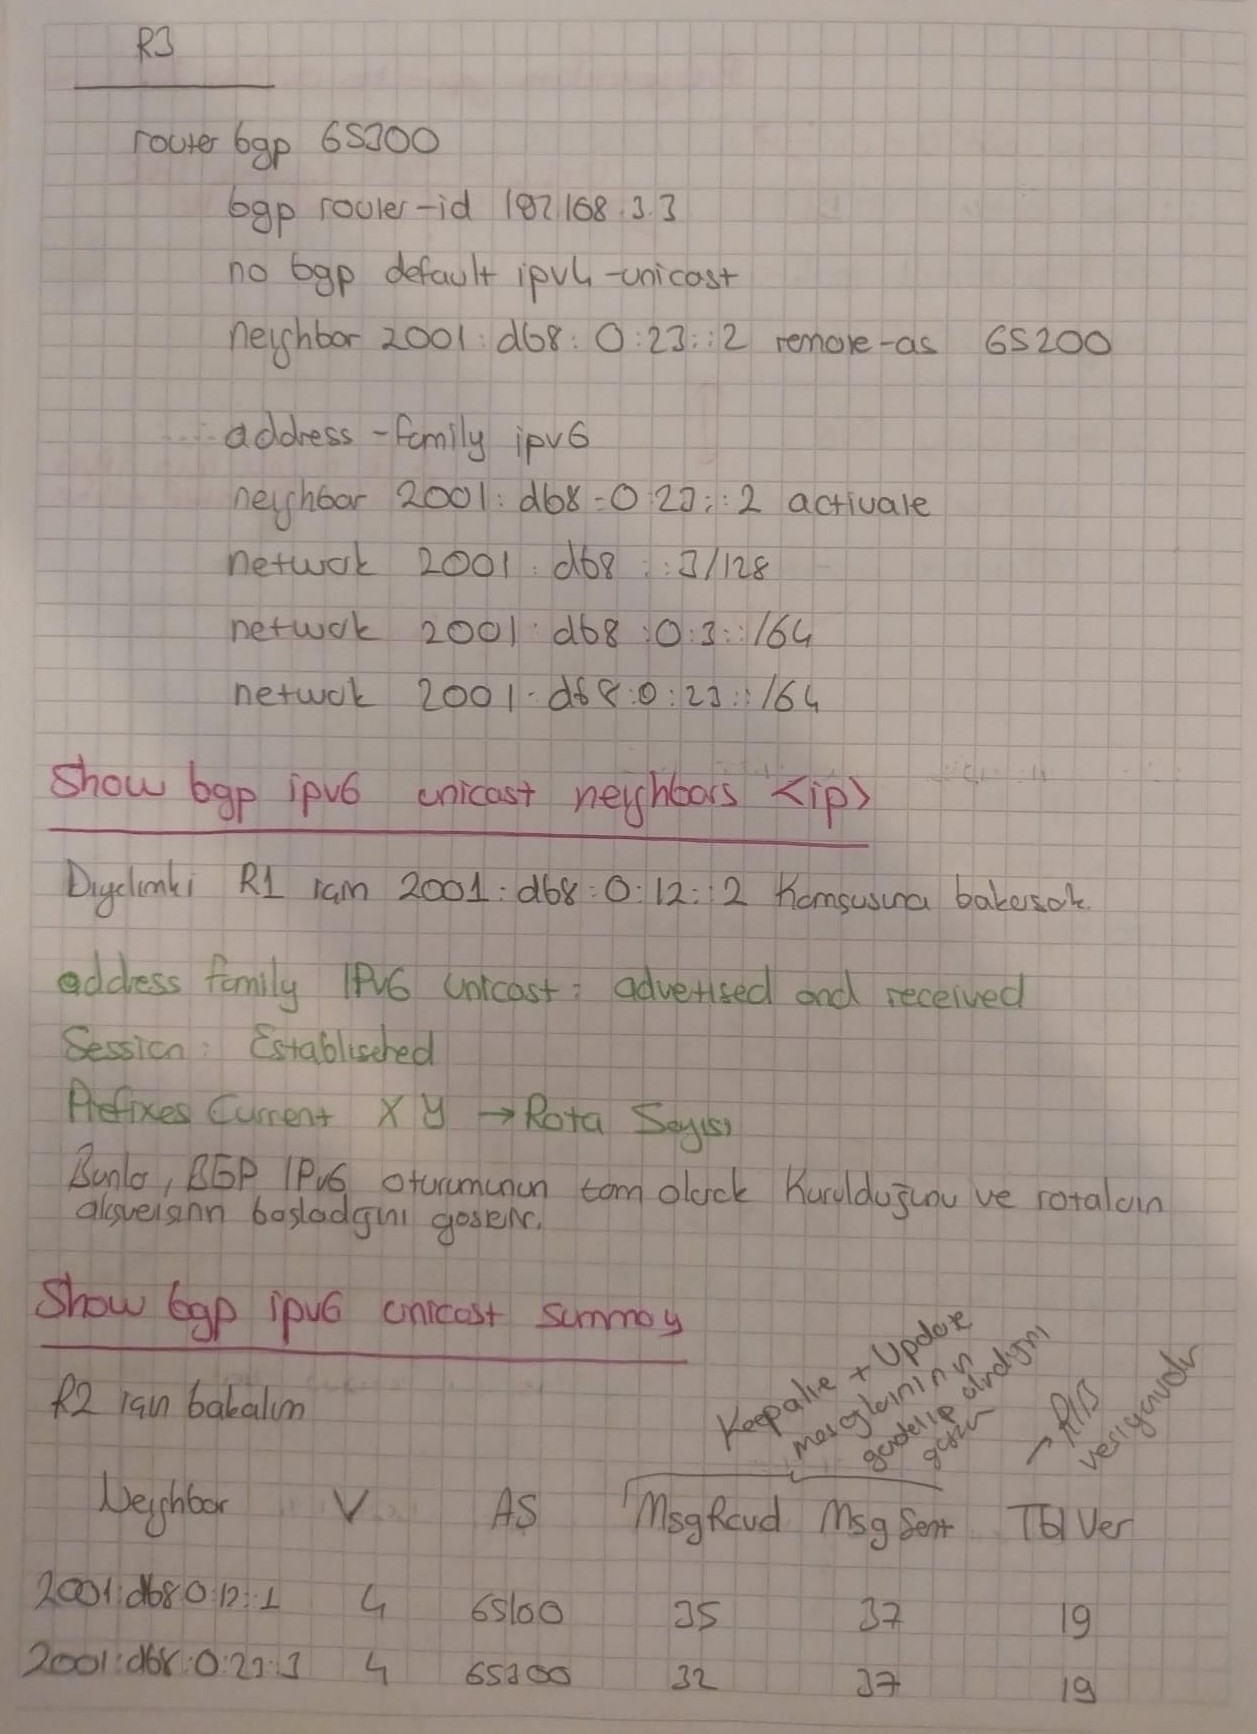 R3
router bgp 65300
bgp router-id 192.168.3.3
no bgp default ipv4-unicast
neighbor 2001:db8:0:23::2 remote-as 65200
address-family ipv6
neighbor 2001:db8:0:23::2 activate
network 2001:db8::3/128
network 2001:db8:0:3::/64
network 2001:db8:0:23::/64
Show bgp ipv6 unicast neighbors <ip>
Diyelimki R1 için 2001:db8:0:12::2 Komşusuna bakarsak.
address family IPv6 Unicast: advertised and received
Session: Establisched
Prefixes Current X Y → Rota Sayısı
Bunlar, BGP IPv6 oturumunun tam olarak Kurulduğunu ve rotaların
alışverişinin başladığını gösterir.
Show bgp ipv6 unicast summary
R2 için bakalım
Keepalive + Update
mesajlarının
gönderilip alındığını
gösterir
→ RIB
versiyonudur
Neighbor V AS MsgRcvd MsgSent Tbl Ver
2001:db8:0:12::1 4 65100 35 37 19
2001:db8:0:23::3 4 65300 32 37 19